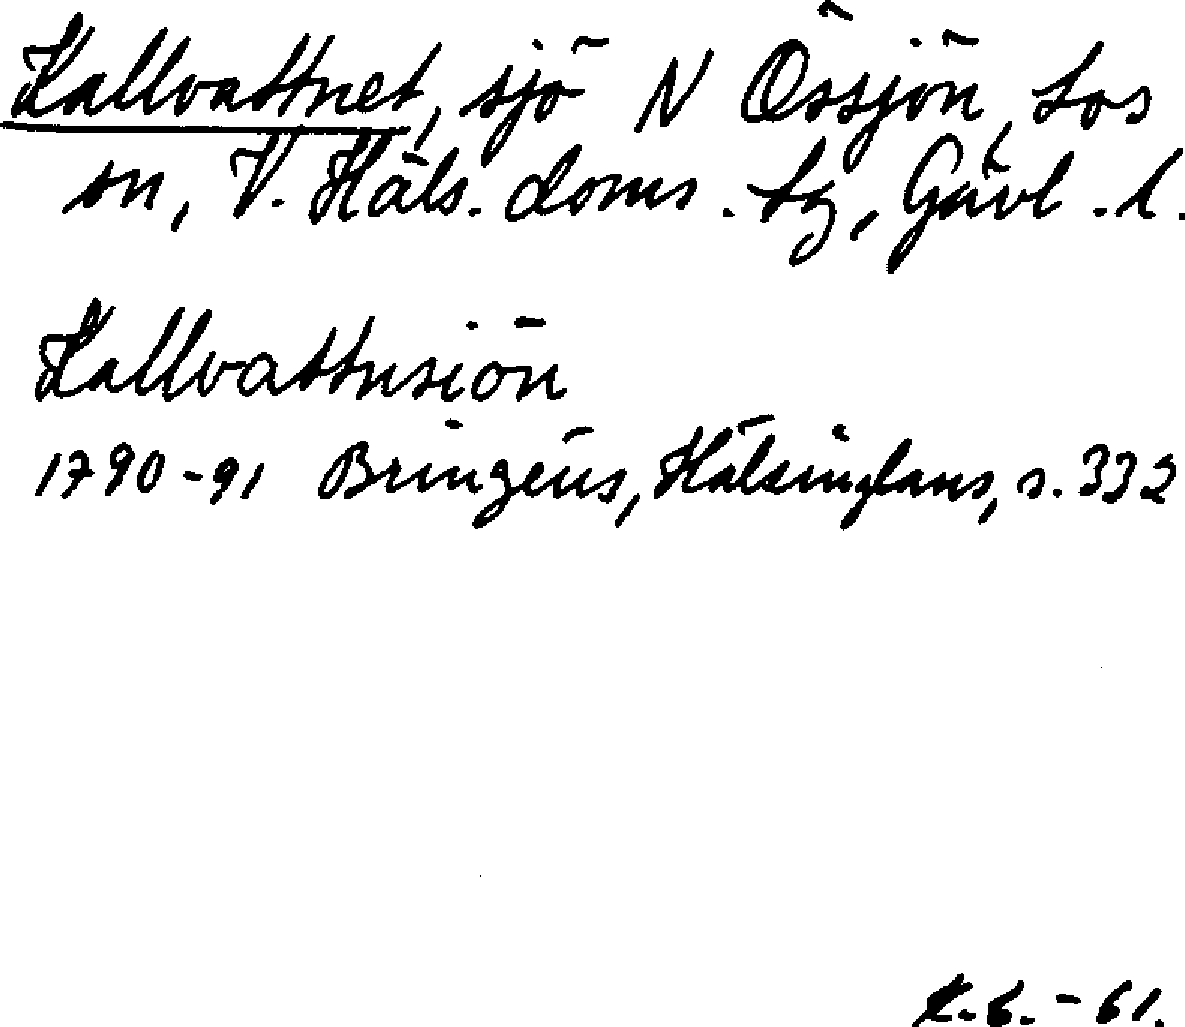 Kallvattnet, sjö N Össjön, Los
sn, V. Häls. doms. tg, Gävl. l.
Kallvattusiön
1790-91 Bringéus, Hälsinglans, s. 332
K.G. -61.